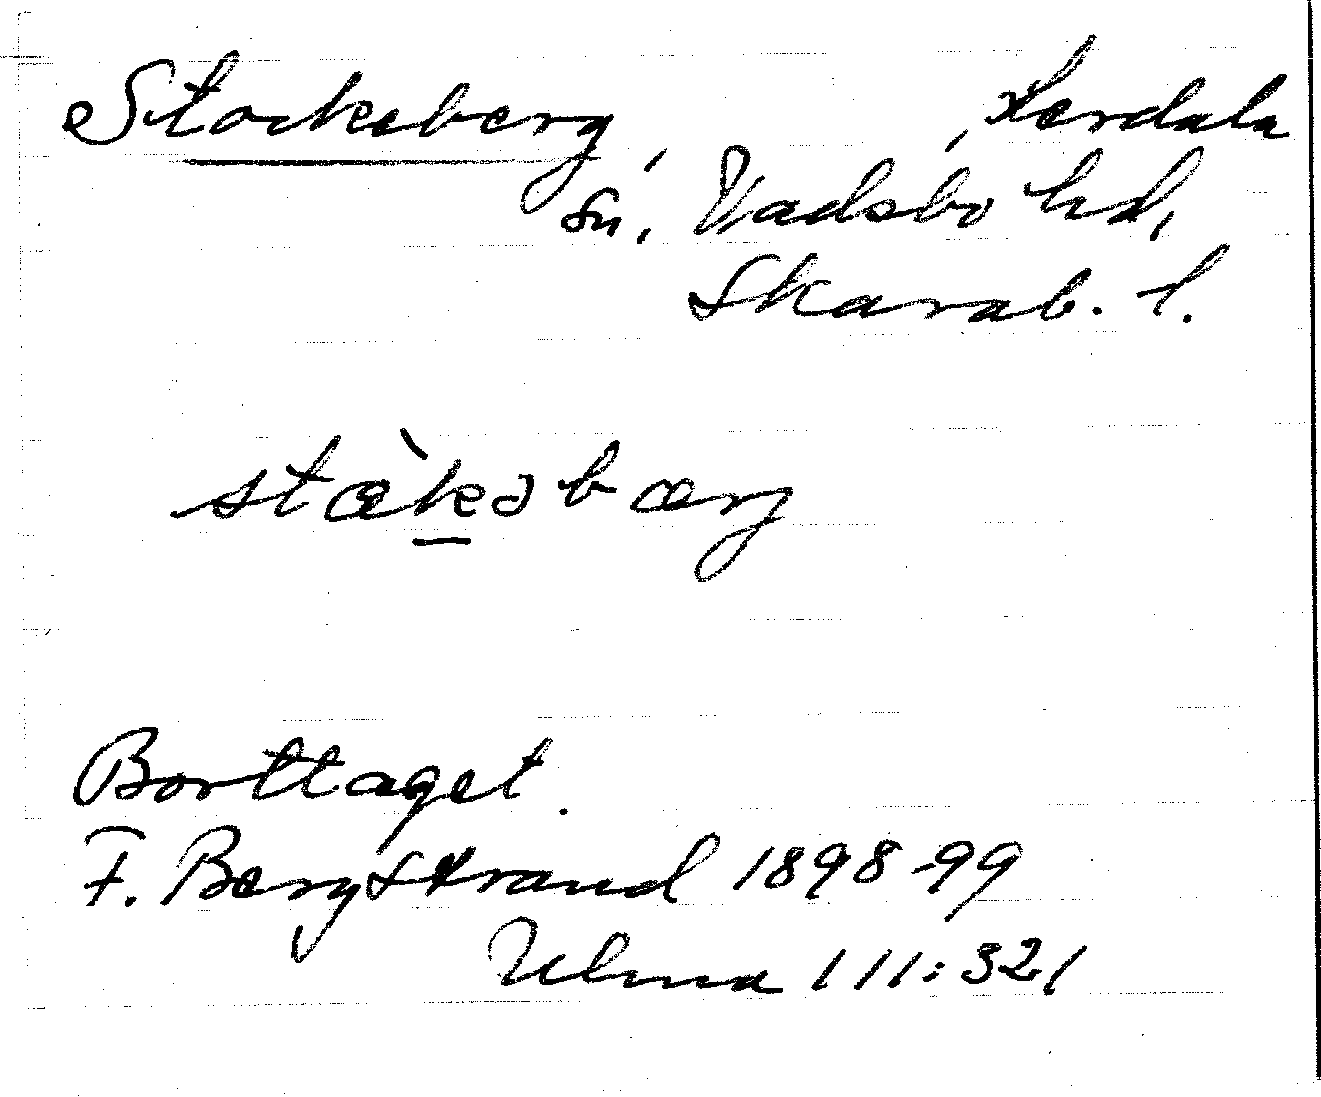 Stockeberg, Lerdala
sn, Vadsbo hd,
Skarab. l.
stæ̀kəbærg
Borttaget.
F. Bergstrand 1898-99
Ulma 111:321